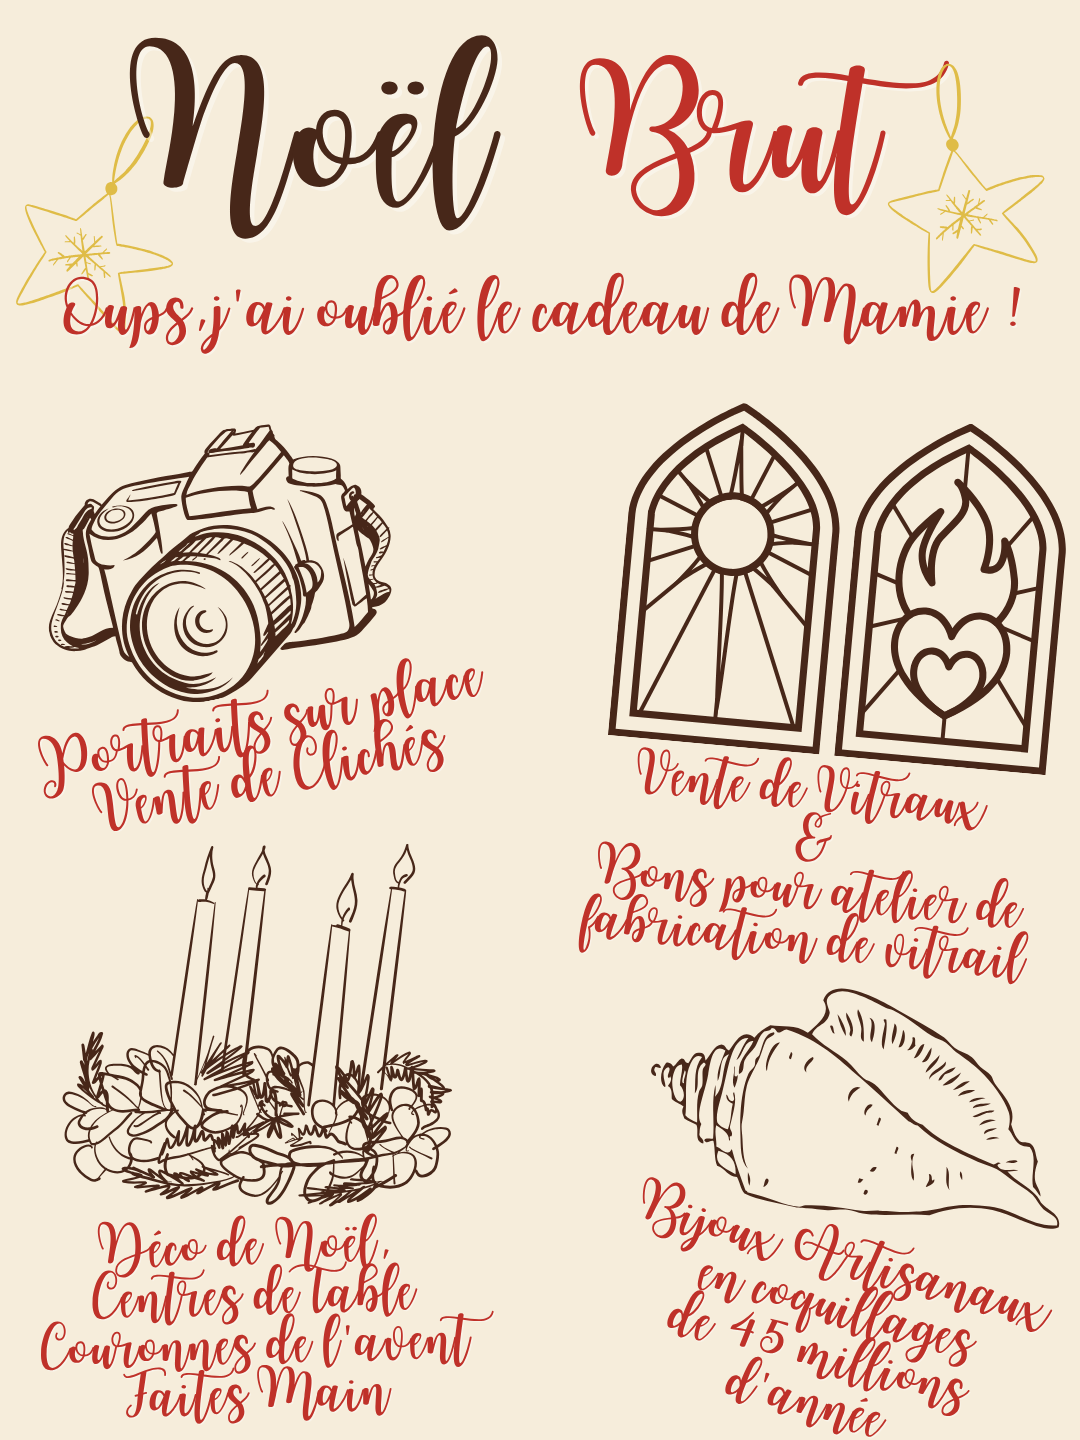 Noël Brut
Oups,j'ai oublié le cadeau de Mamie !
Portraits sur place
Vente de Clichés
Vente de Vitraux
&
Bons pour atelier de
fabrication de vitrail
Déco de Noël,
Centres de table
Couronnes de l'avent
Faites Main
Bijoux Artisanaux
en coquillages
de 45 millions
d'année